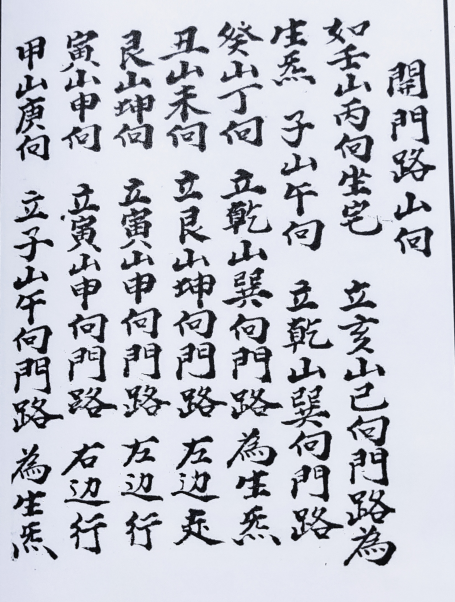 開門路山向
如壬山丙向坐宅 立亥山巳向門路為
生炁 子山午向 立乾山巽向門路
癸山丁向 立乾山巽向門路 為生炁
丑山未向 立艮山坤向門路 左边
艮山坤向 立寅山申向門路 左边行
寅山申向 立寅山申向門路 右边行
甲山庚向 立子山午向門路 為生炁